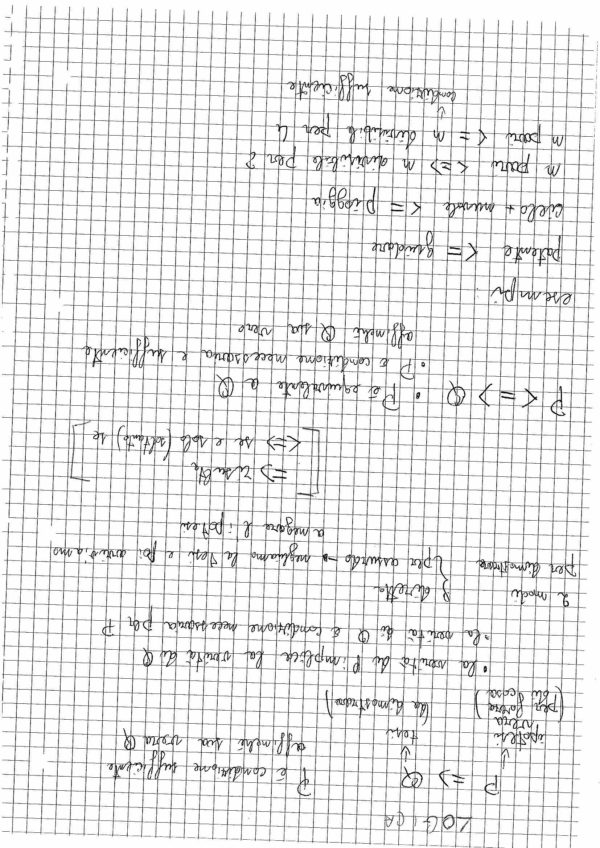 LOGICA
P => Q P è condizione sufficiente
affinché sia vera Q
↓ ↓
ipotesi tesi
vera
(per forza di cosa) (da dimostrare)
• la verità di P implica la verità di Q
• la verità di Q è condizione necessaria per P
2 modi { diretta
per dimostrare { per assurdo → neghiamo la tesi e poi arriviamo
a negare l'ipotesi
[ => risulta
<=> se e solo (soltanto) se ]
P <=> Q • P è equivalente a Q
• P è condizione necessaria e sufficiente
affinché Q sia vero
esempi:
patente <= guidare
cielo + nuvole <= pioggia
m pari <=> m divisibile per 2
m pari <= m divisibile per 4
↓
condizione sufficiente